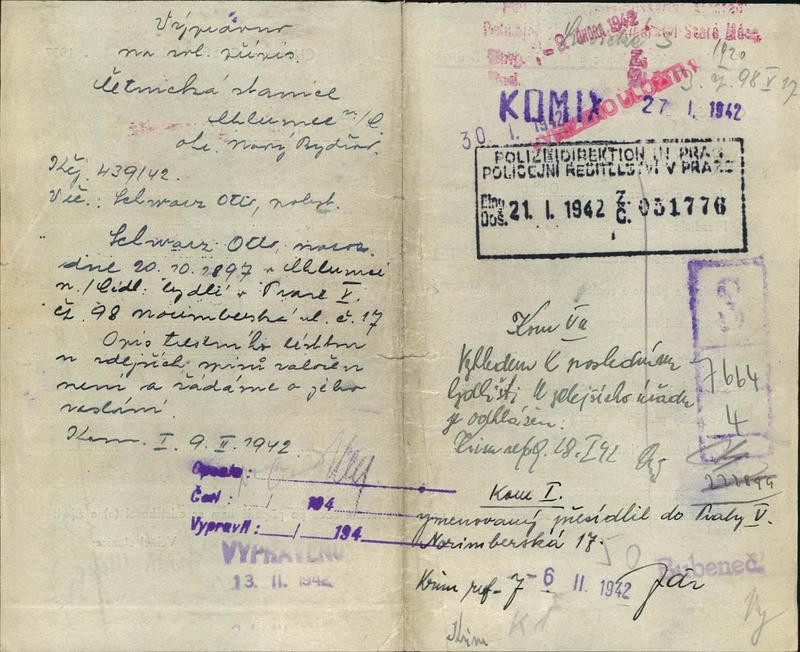 Výpravna
na rel. přípis
Četnická stanice
Chlumec n/C
okr. Nový Bydžov.
Kčj. 439/42.
Věc: Schwarz Otto, pobyt.
Schwarz Otto, naroz.
dne 20.10.1897 v Chlumci
n./Cidl. bydlí v Praze V.
čp. 98 norimberská ul. č. 17
Opis trestního lístku
u zdejších spisů založen
není a žádáme o jeho
zaslání.
Kom. I. 9. II. 1942.
Opsalo:
Četl: / 194
Vypravil: / 194
VYPRAVENO
13. II. 1942
ÚNORA 1942
1920
98 V 17
KOMIX
27 I. 1942
30 I. 1942
POLIZEIDIREKTION IN PRAG
POLICEJNÍ ŘEDITELSTVÍ V PRAZE
Eing.
Doš. 21. I. 1942 Z. Č. 031776
Kom Va
Vzhledem k poslednímu
bydlišti u zdejšího úřadu
je odhlášen.
Krim ref. 28. I 42
7664
4
222894
Kom I.
jmenovaný přesídlil do Prahy V.
Norimberská 17.
Krim ref. 7 -6 II 1942
Bubeneč
Krim